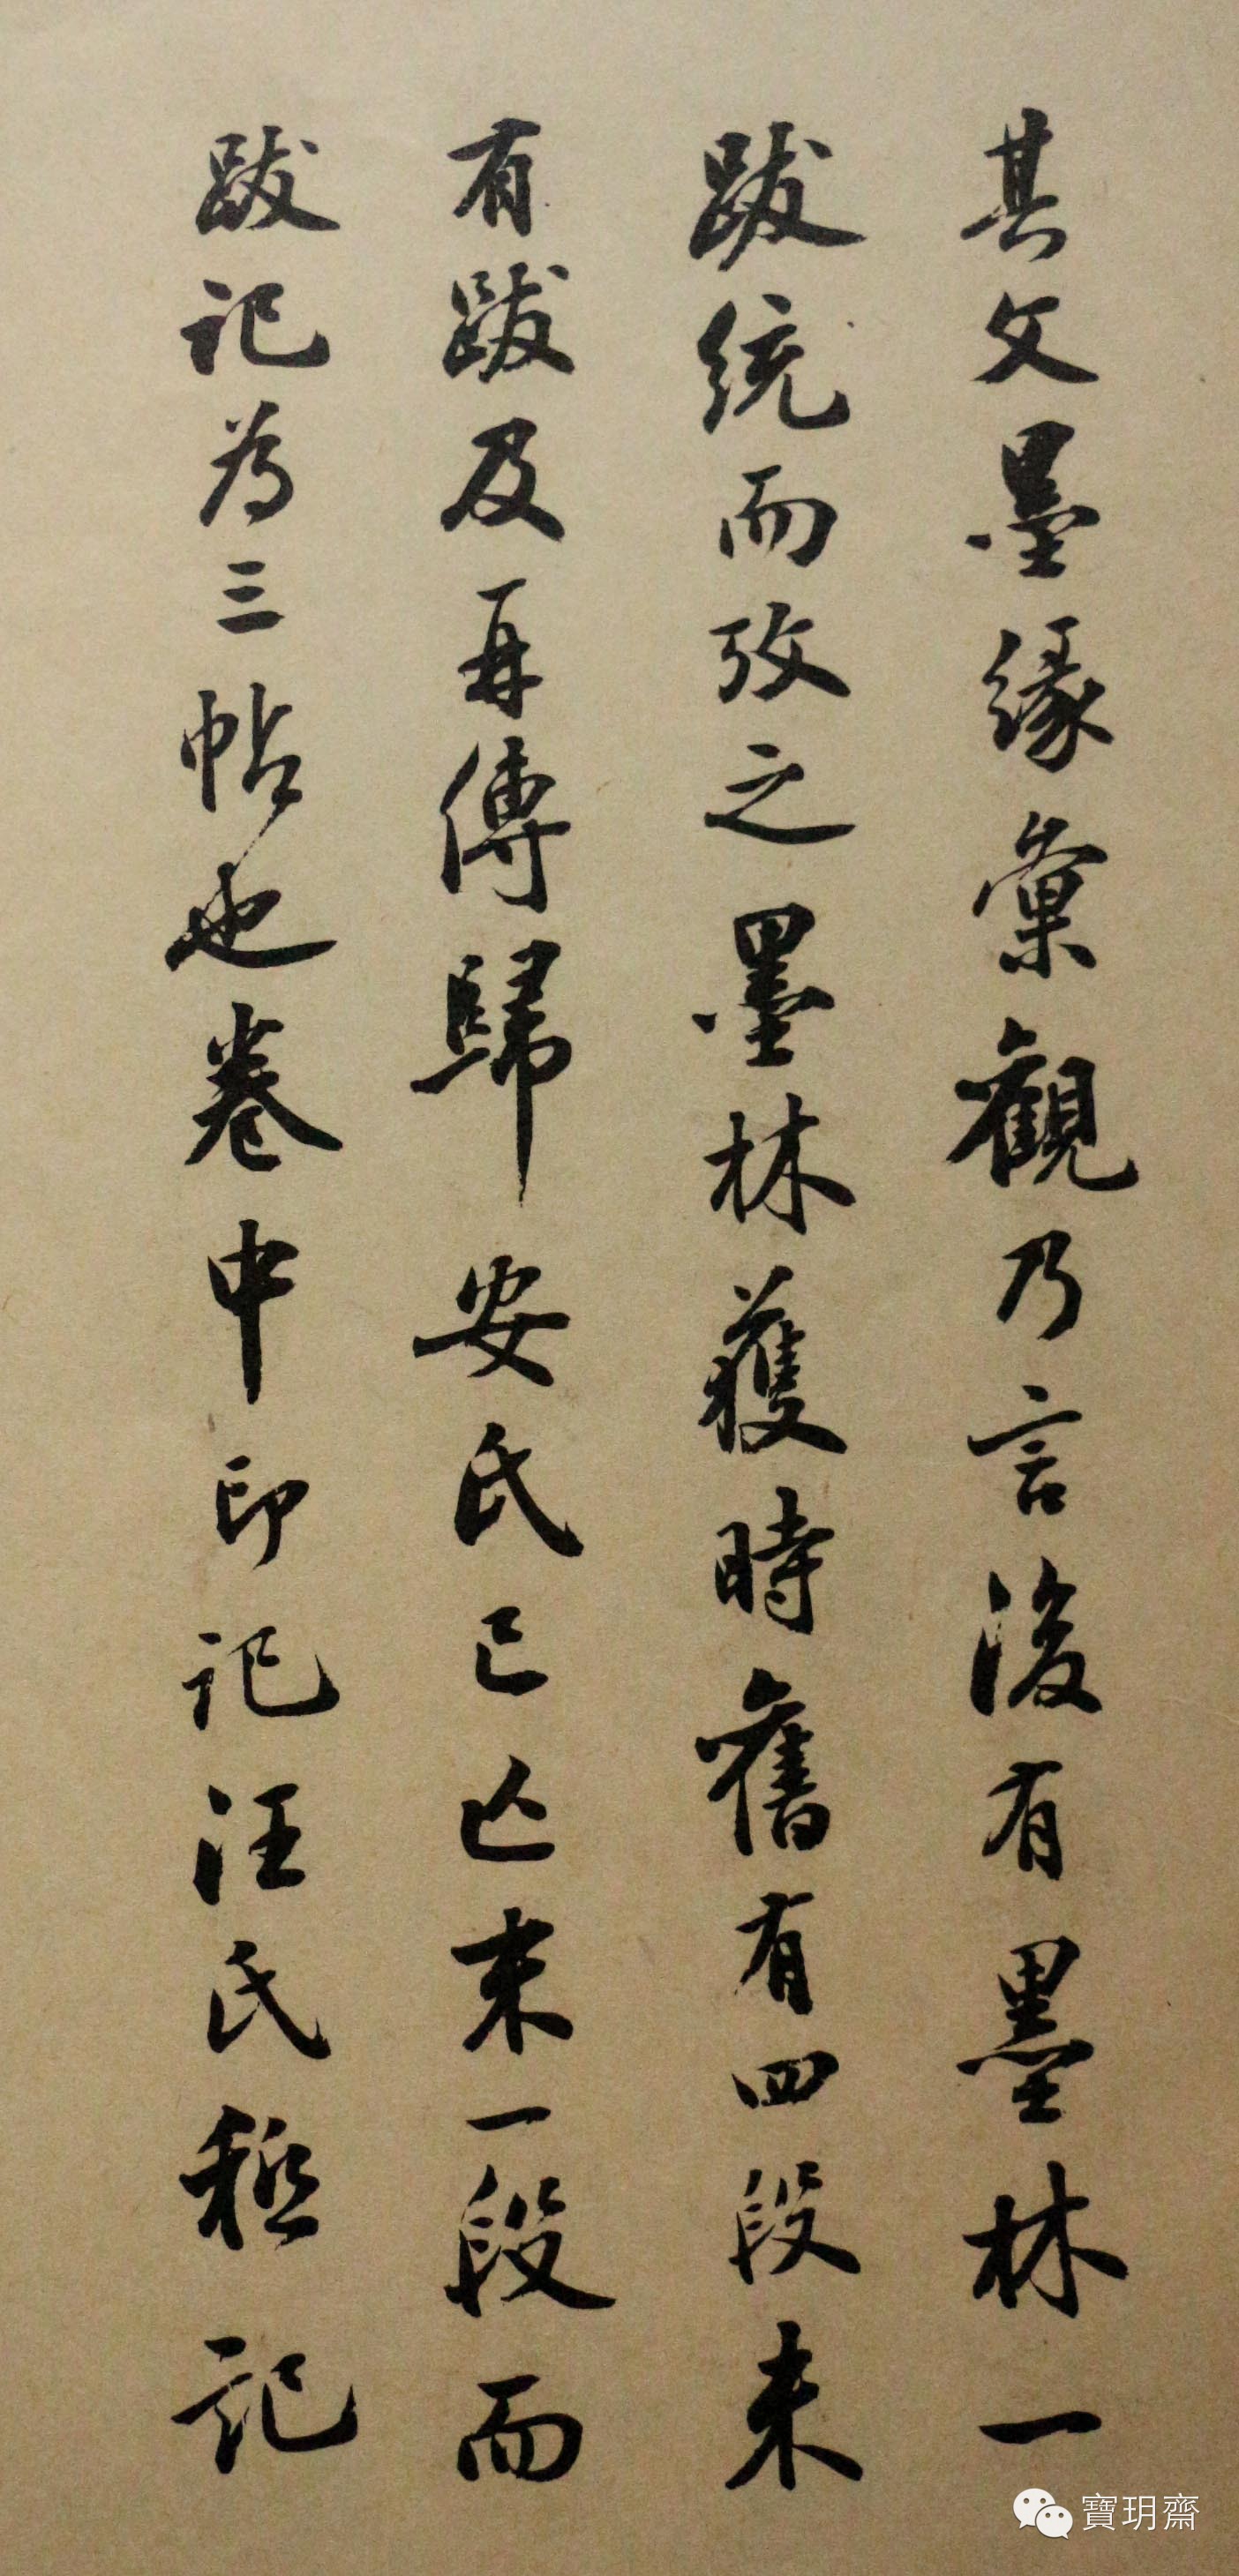 其文墨緣彙觀乃言後有墨林一
跋統而攷之墨林獲時舊有四段未
有跋及再傳歸安氏已亡末一段而
跋記為三帖也卷中印記汪氏稱記
寶玥齋